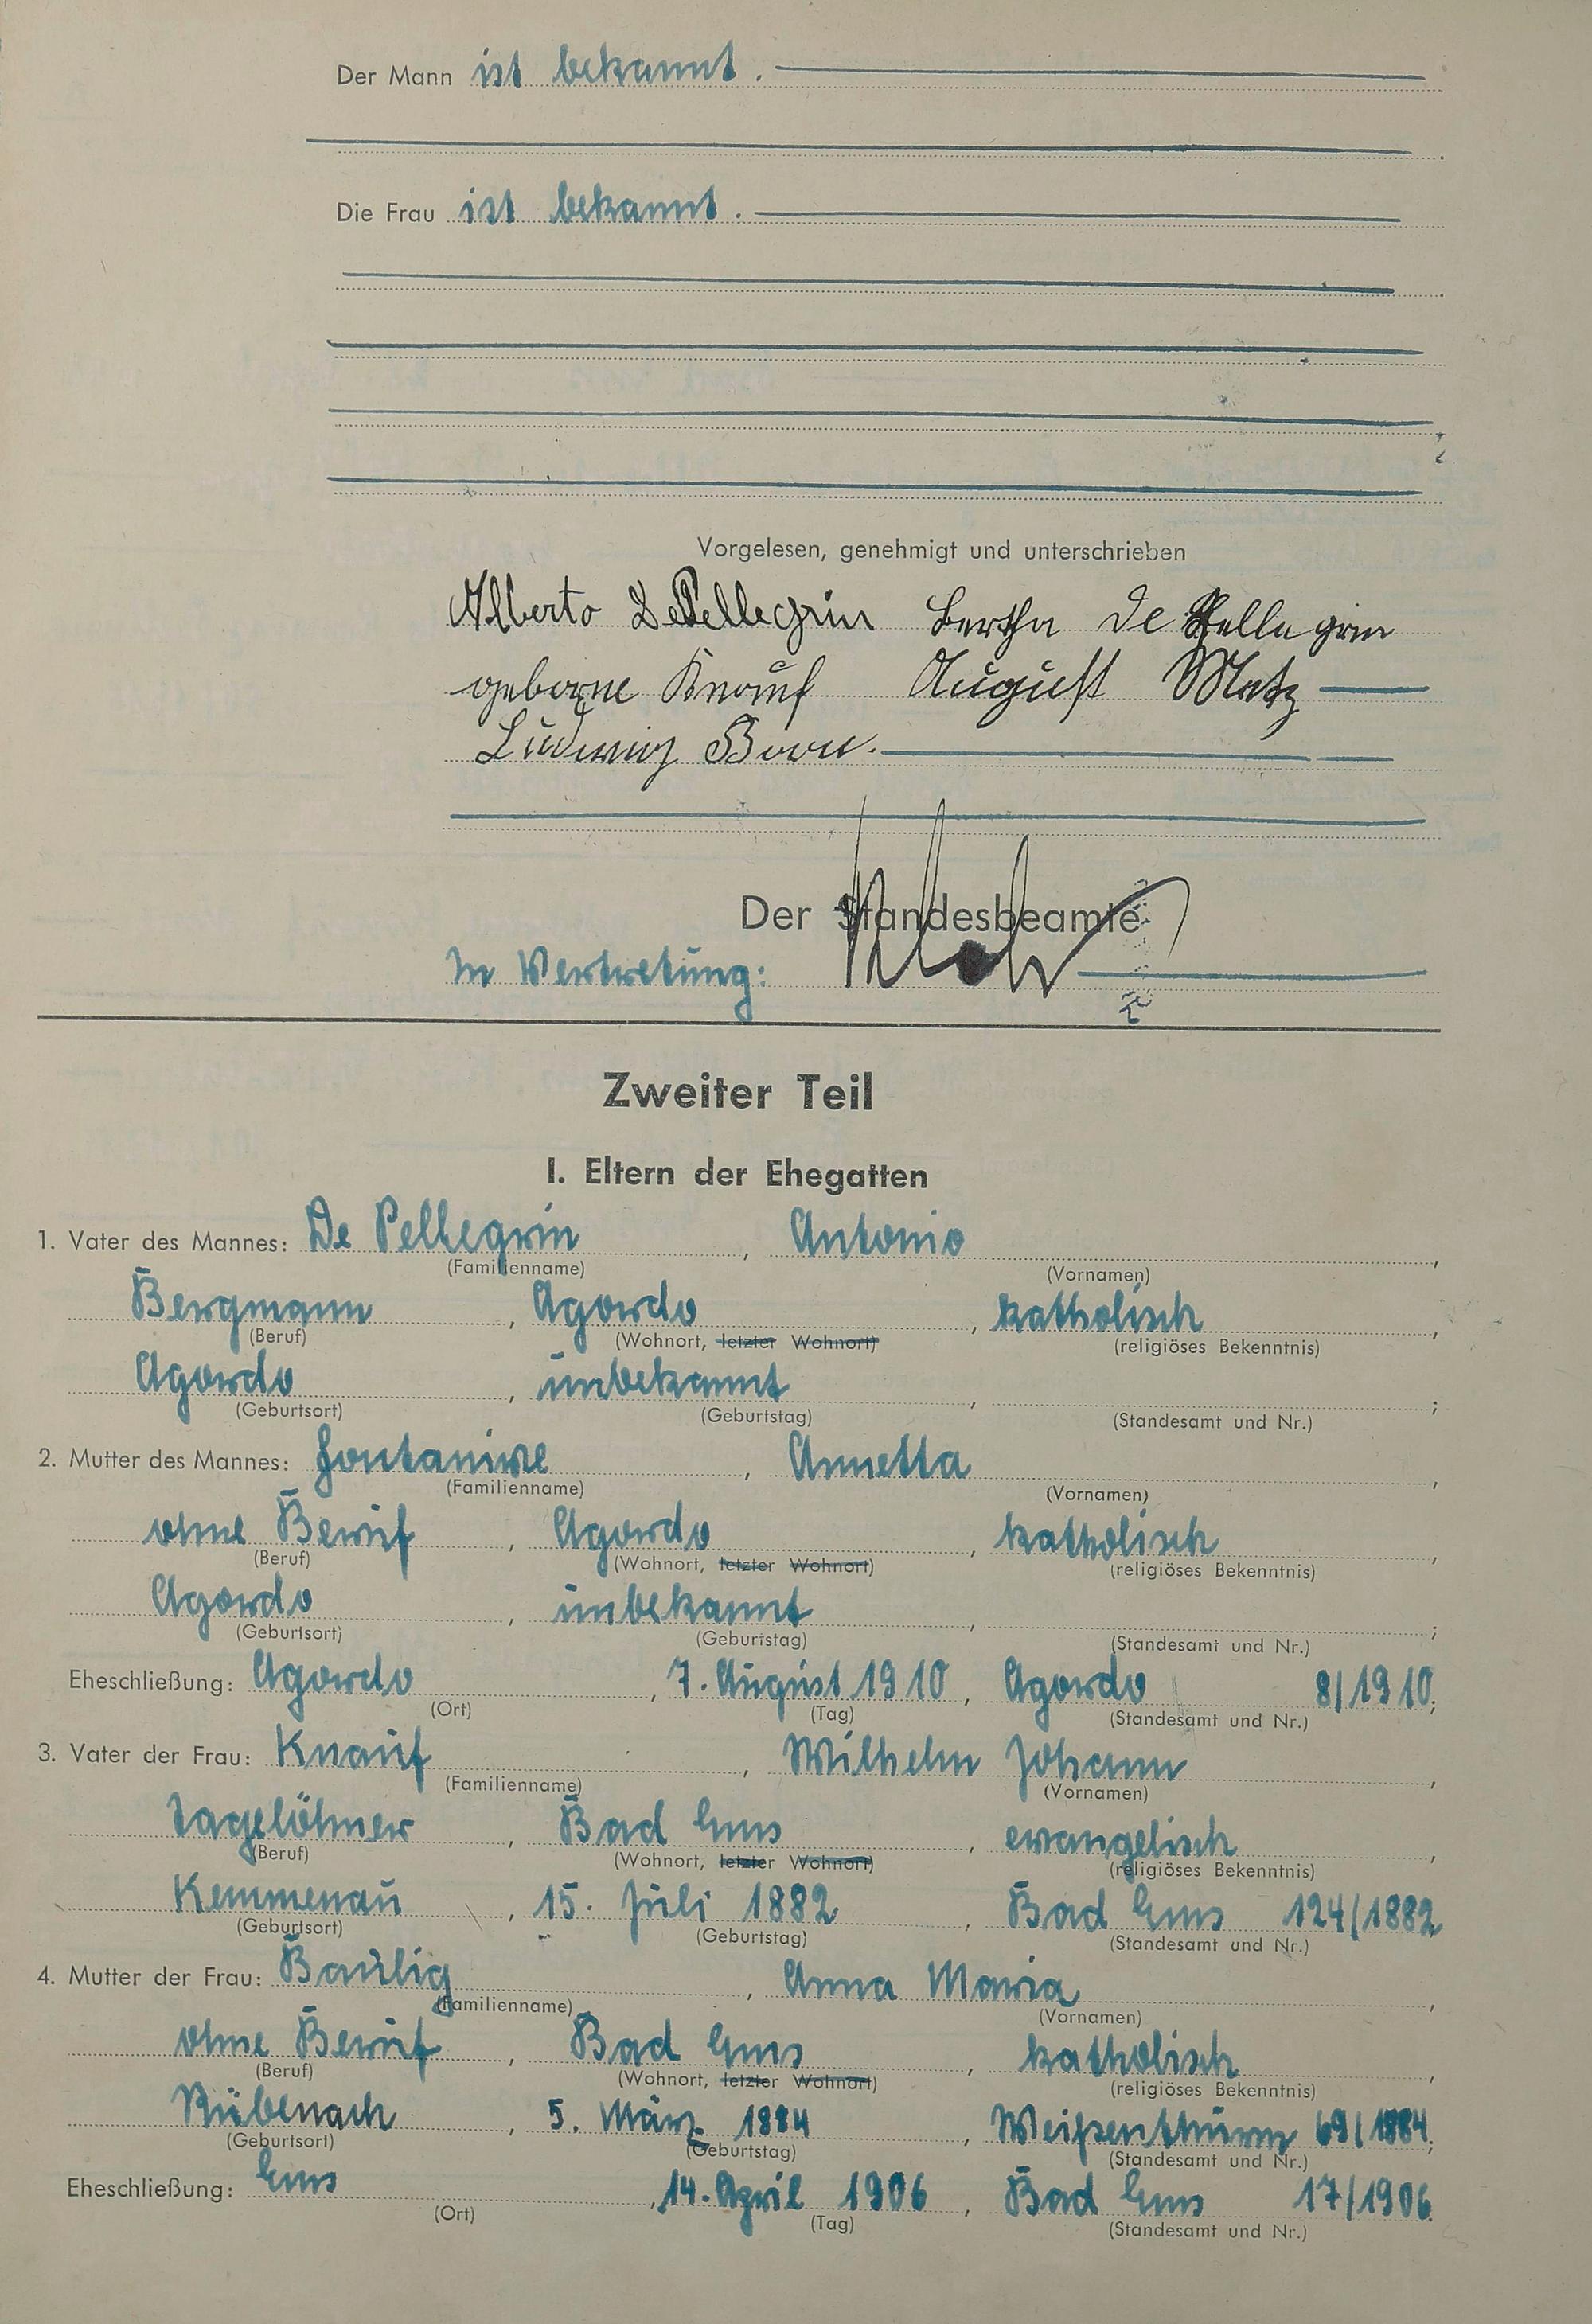 Der Mann ist bekannt.
Die Frau ist bekannt.
Vorgelesen, genehmigt und unterschrieben
Alberto De Pellegrin Bertha De Pellegrin
geborne Knauf August Metz
Ludwig Born.
Der Standesbeamte
In Vertretung:
Zweiter Teil
I. Eltern der Ehegatten
1. Vater des Mannes: De Pellegrin, Antonio,
(Familienname) (Vornamen)
Bergmann, Agordo, katholisch,
(Beruf) (Wohnort, letzter Wohnort) (religiöses Bekenntnis)
Agordo, unbekannt, ;
(Geburtsort) (Geburtstag) (Standesamt und Nr.)
2. Mutter des Mannes: Fontanive, Annetta,
(Familienname) (Vornamen)
ohne Beruf, Agordo, katholisch,
(Beruf) (Wohnort, letzter Wohnort) (religiöses Bekenntnis)
Agordo, unbekannt, ;
(Geburtsort) (Geburtstag) (Standesamt und Nr.)
Eheschließung: Agordo, 7. August 1910, Agordo 8/1910;
(Ort) (Tag) (Standesamt und Nr.)
3. Vater der Frau: Knauf, Wilhelm Johann,
(Familienname) (Vornamen)
Tagelöhner, Bad Ems, evangelisch,
(Beruf) (Wohnort, letzter Wohnort) (religiöses Bekenntnis)
Kemmenau, 15. Juli 1882, Bad Ems 124/1882
(Geburtsort) (Geburtstag) (Standesamt und Nr.)
4. Mutter der Frau: Baulig, Anna Maria,
(Familienname) (Vornamen)
ohne Beruf, Bad Ems, katholisch,
(Beruf) (Wohnort, letzter Wohnort) (religiöses Bekenntnis)
Rübenach, 5. März 1884, Weißenthurm 69/1884;
(Geburtsort) (Geburtstag) (Standesamt und Nr.)
Eheschließung: Ems, 14. April 1906, Bad Ems 17/1906.
(Ort) (Tag) (Standesamt und Nr.)